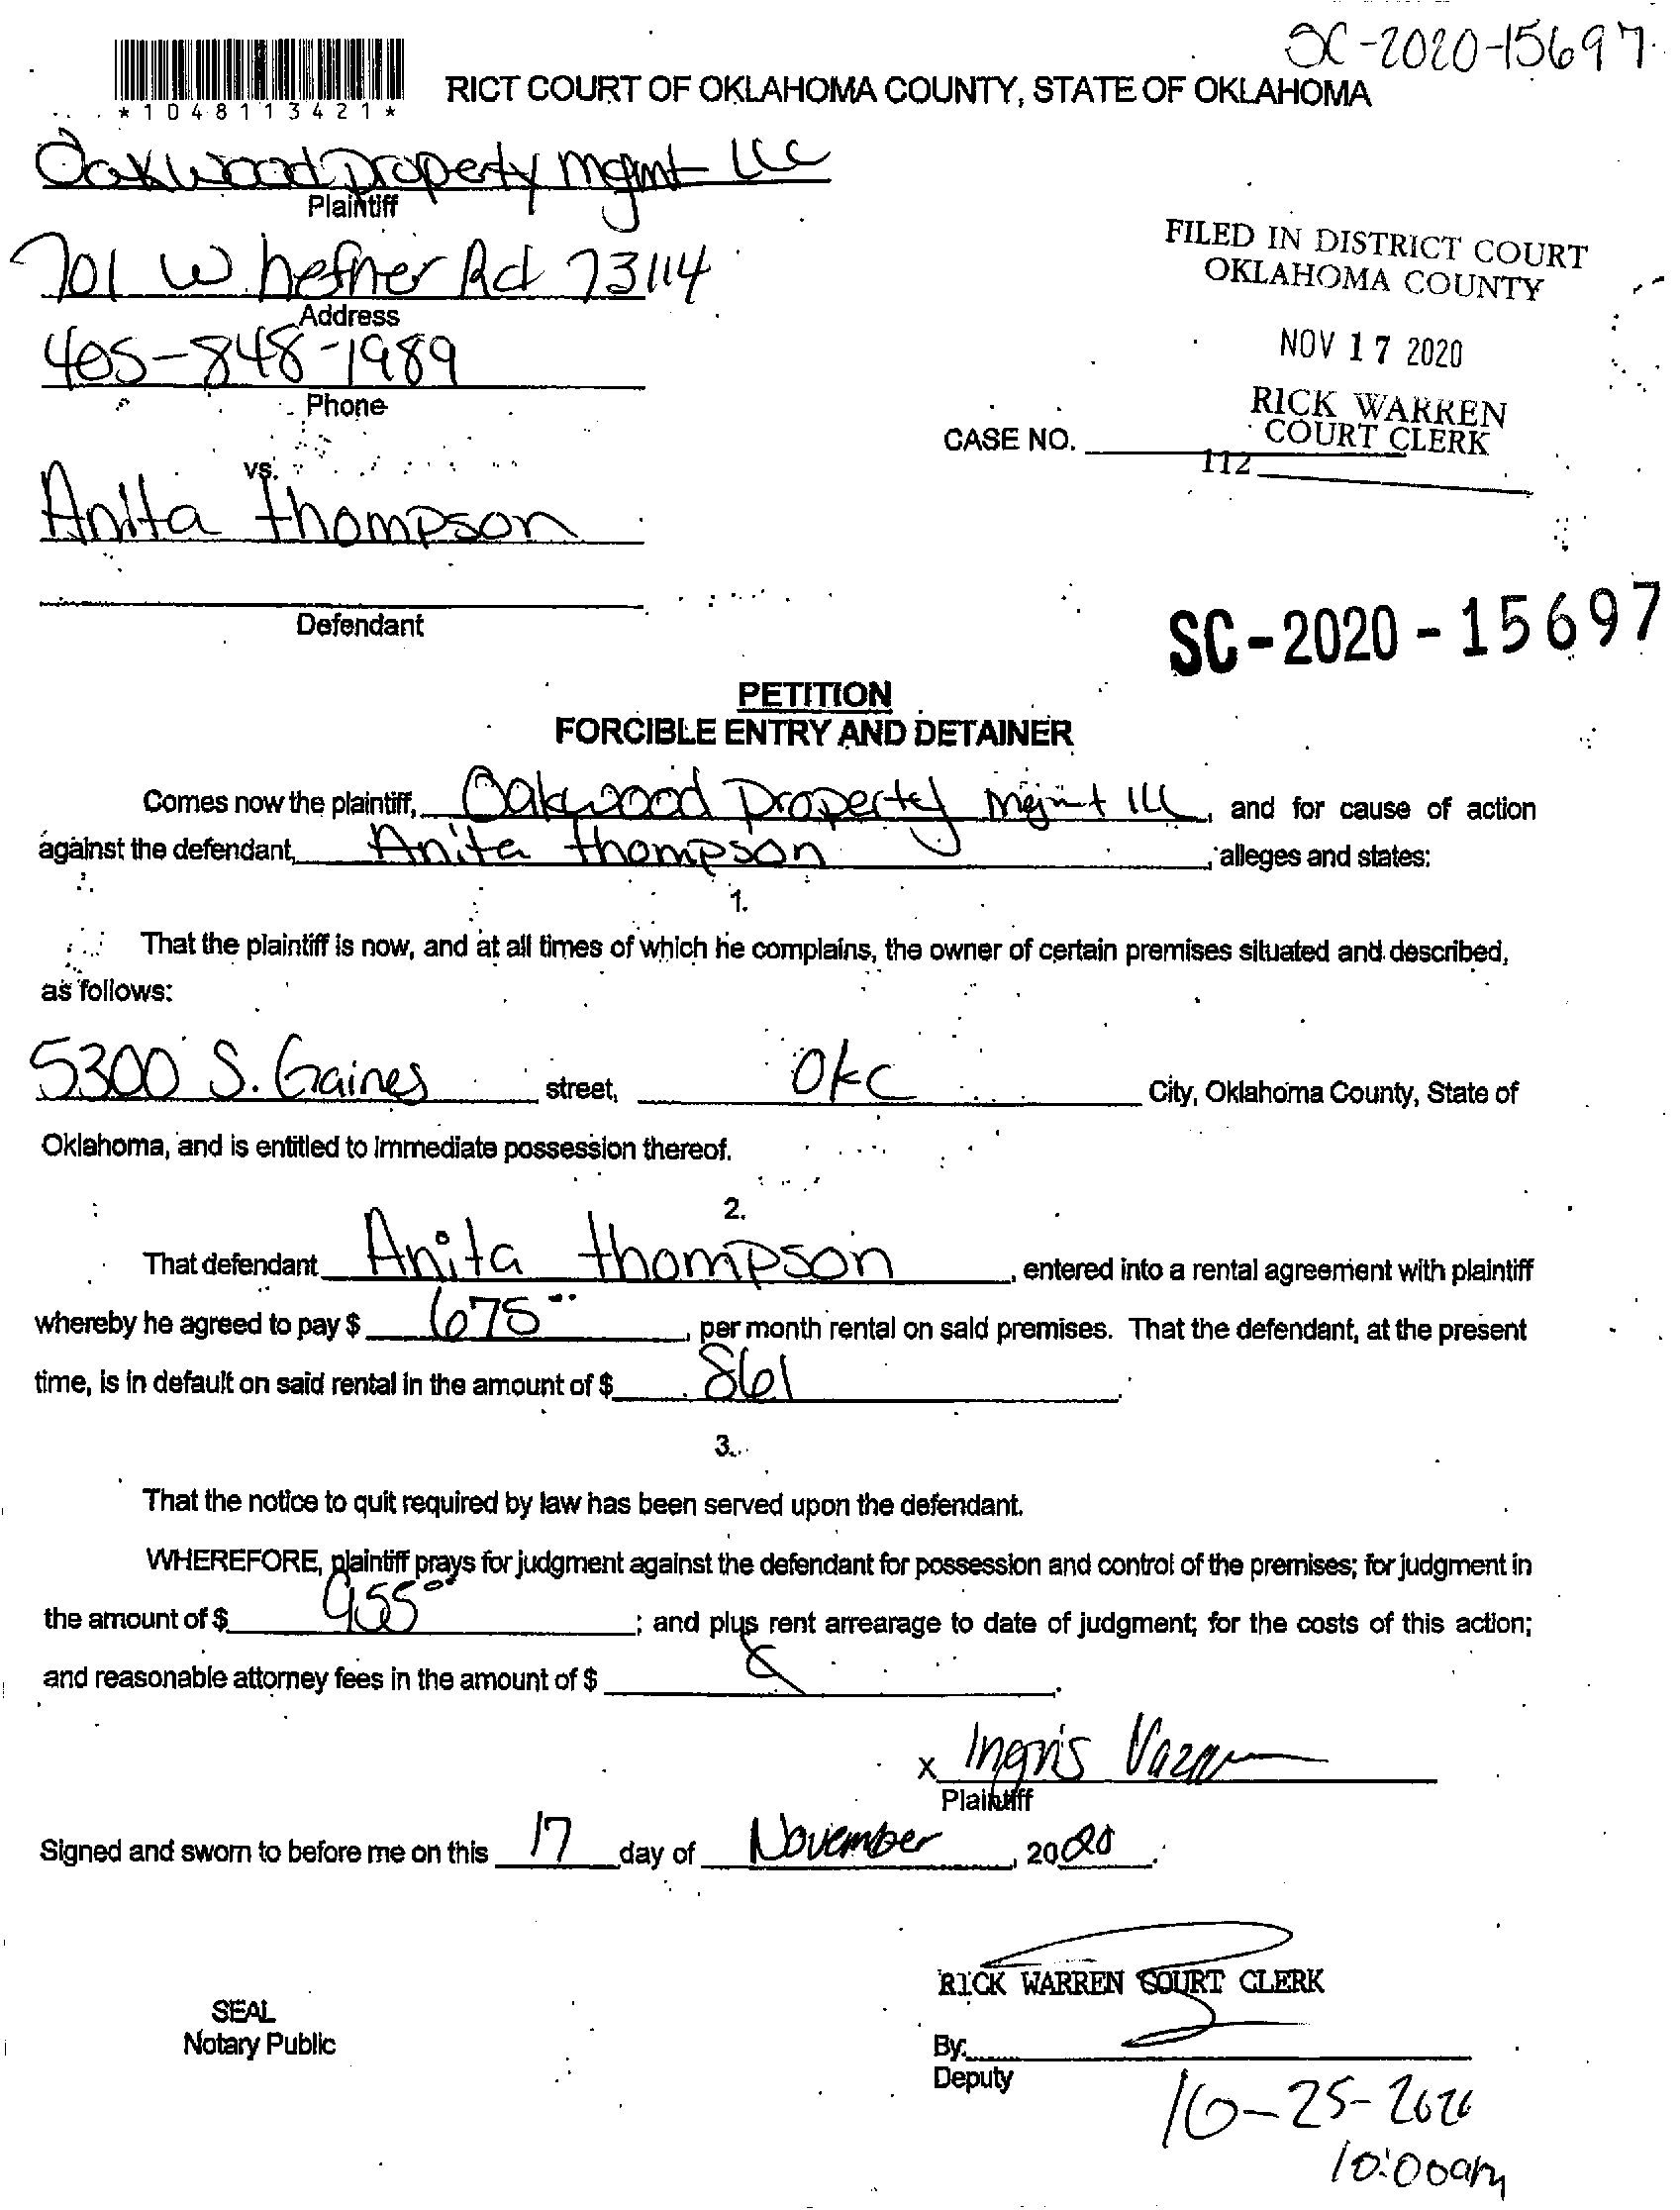 SC-2020-15697
*1048113421*
RICT COURT OF OKLAHOMA COUNTY, STATE OF OKLAHOMA
Oakwood Property mgmt LLC
Plaintiff
701 W hefner Rd 73114
Address
405-848-1989
Phone
FILED IN DISTRICT COURT
OKLAHOMA COUNTY
NOV 17 2020
RICK WARREN
COURT CLERK
CASE NO.
112
vs.
Anita thompson
Defendant
SC-2020-15697
PETITION
FORCIBLE ENTRY AND DETAINER
Comes now the plaintiff, Oakwood Property mgmt LLC, and for cause of action
against the defendant, Anita thompson, alleges and states:
1.
That the plaintiff is now, and at all times of which he complains, the owner of certain premises situated and described,
as follows:
5300 S. Gaines street, OKC City, Oklahoma County, State of
Oklahoma, and is entitled to immediate possession thereof.
2.
That defendant Anita thompson, entered into a rental agreement with plaintiff
whereby he agreed to pay $ 675 00, per month rental on said premises. That the defendant, at the present
time, is in default on said rental in the amount of $ 861.
3.
That the notice to quit required by law has been served upon the defendant.
WHEREFORE, plaintiff prays for judgment against the defendant for possession and control of the premises; for judgment in
the amount of $ 955 00; and plus rent arrearage to date of judgment; for the costs of this action;
and reasonable attorney fees in the amount of $
x Ingris
Plaintiff
Signed and sworn to before me on this 17 day of November, 2020.
RICK WARREN COURT CLERK
SEAL
Notary Public
By:
Deputy
25-2020
10:00am